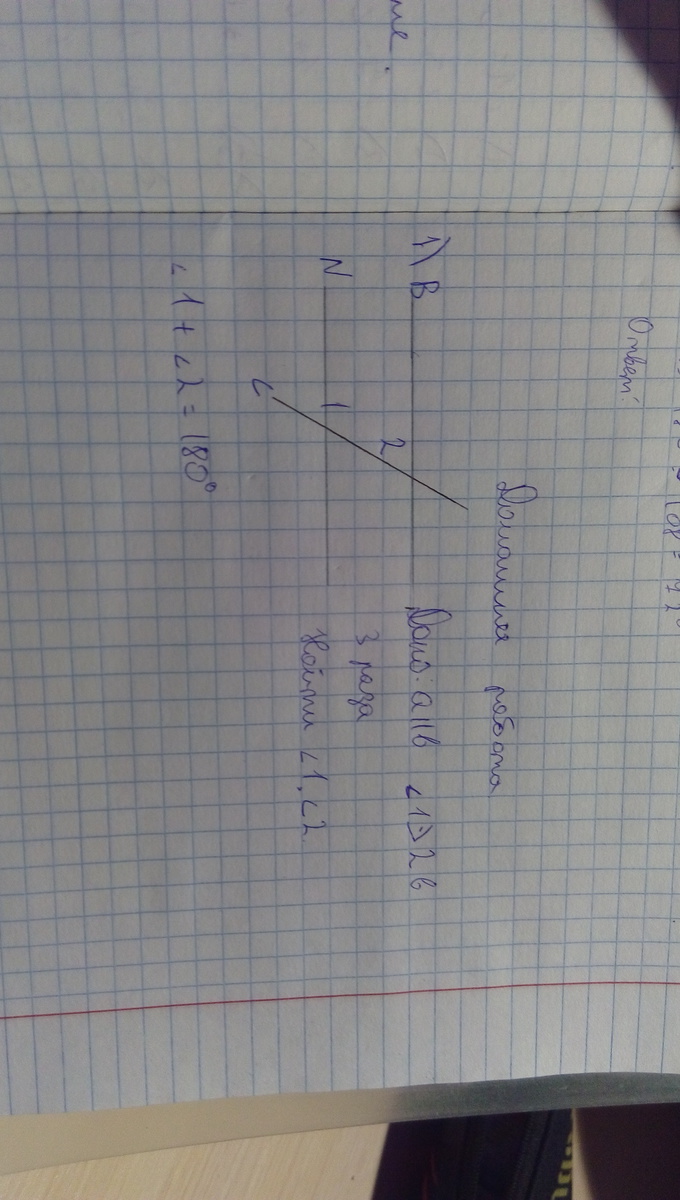 Ответ:
Домашняя работа
1) B
Дано: a || b ∠1 > 2 в
3 раза
2
N
1
Найти ∠1, ∠2
C
∠1 + ∠2 = 180°